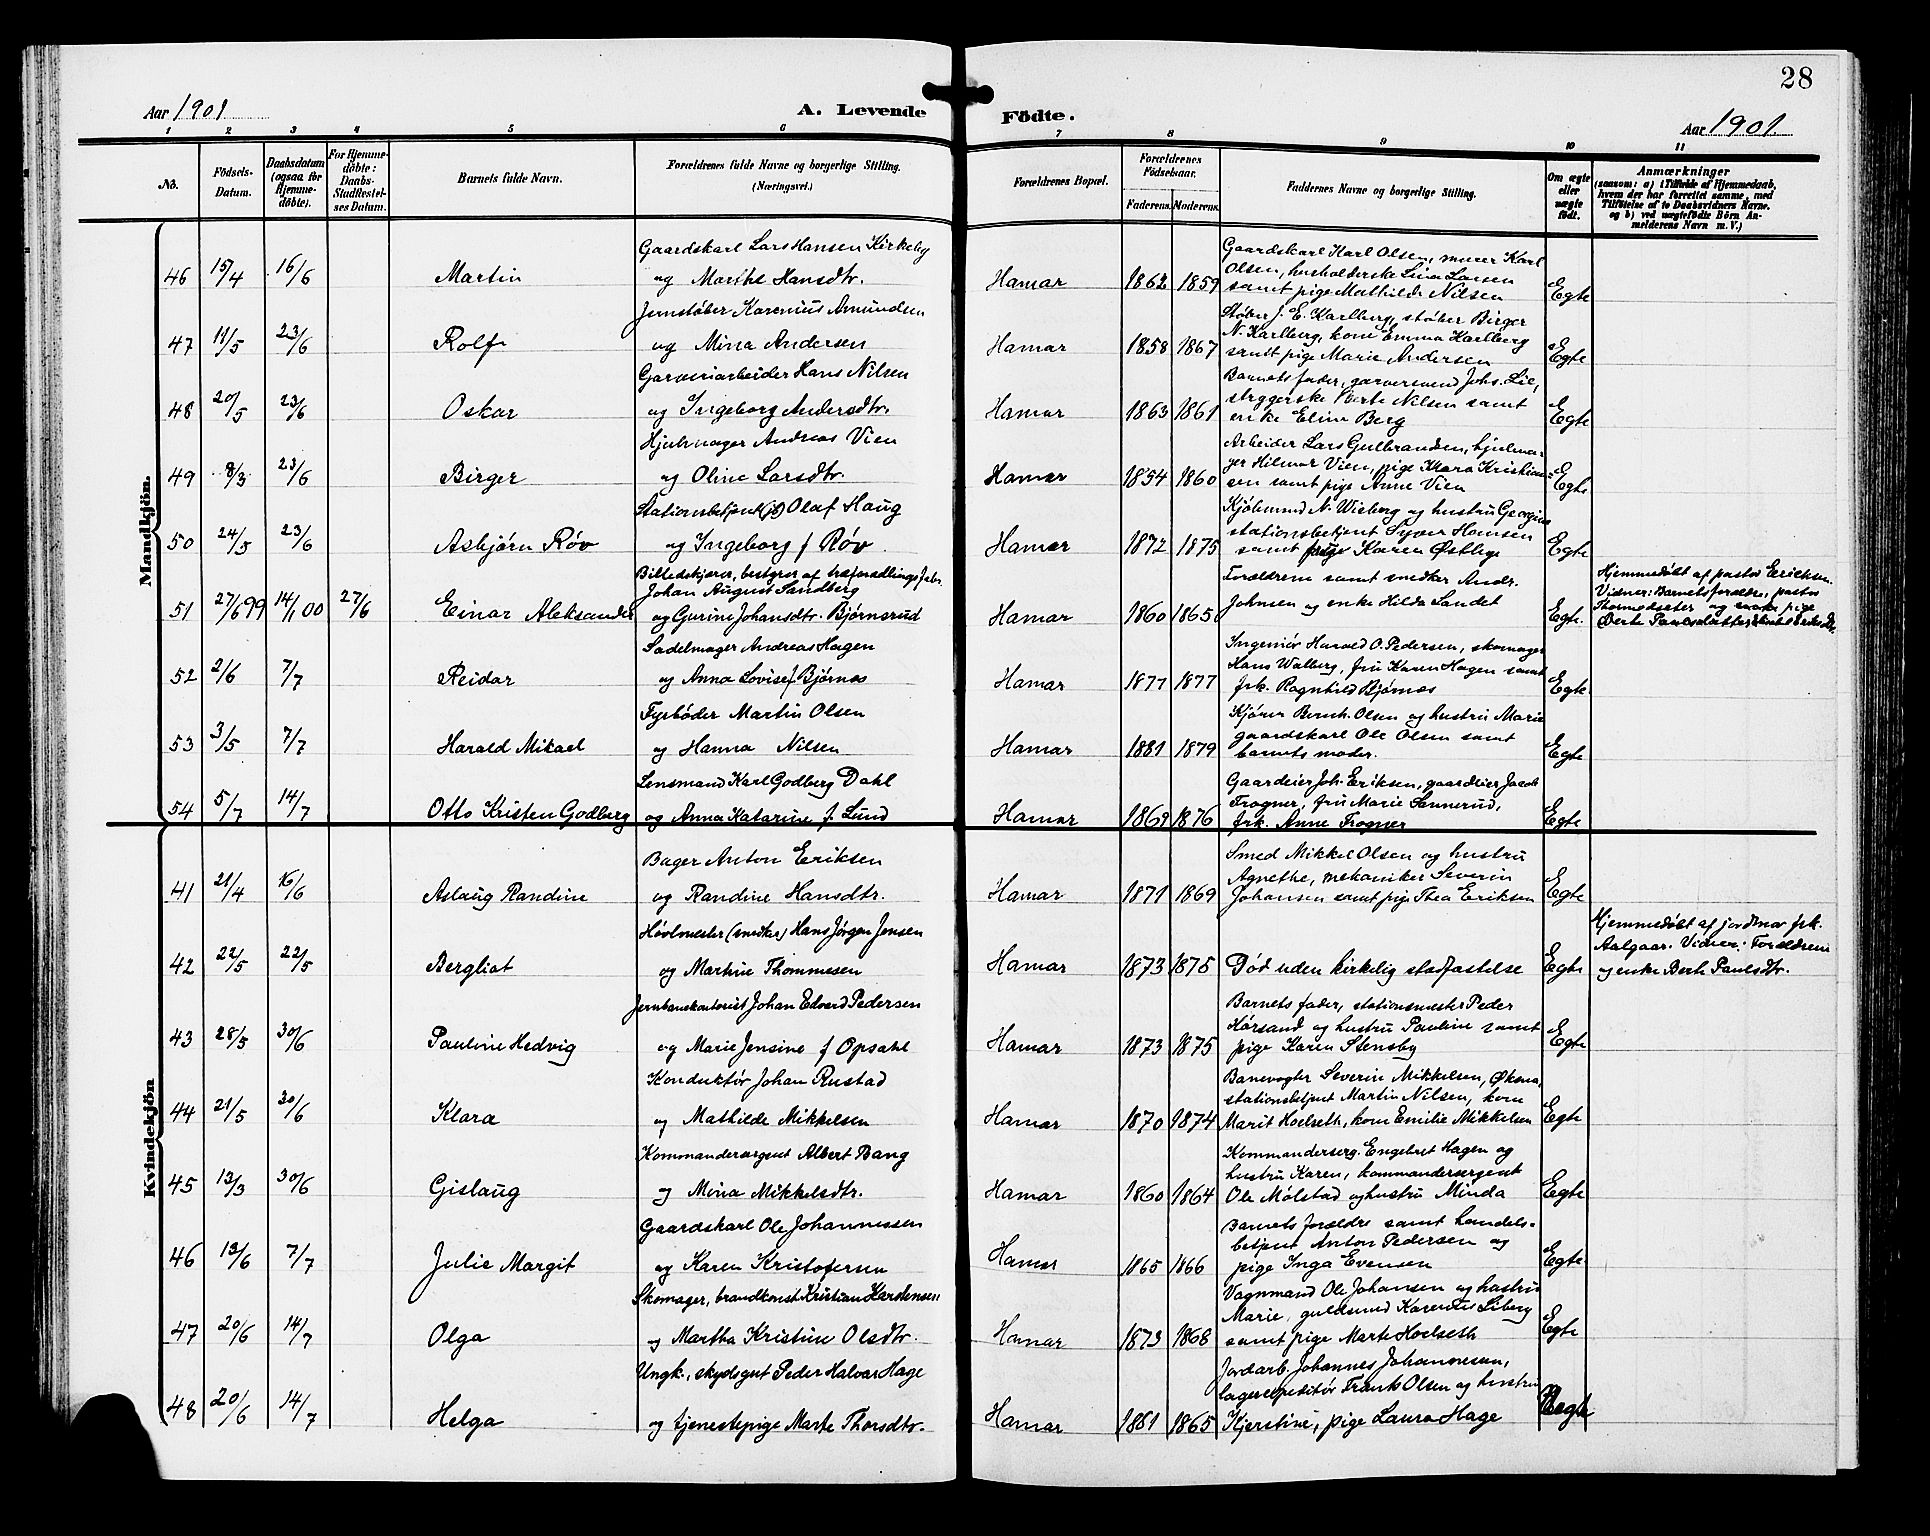 28
Aar 1901
A. Levende Födte.
Aar 1901
1 2 3 4 5 6 7 8 9 10 11
No.
Födsels-Datum.
Daabsdatum (ogsaa for Hjemme-döbte).
For Hjemme-döbte: Daabs-Stadfæstel-ses Datum.
Barnets fulde Navn.
Forældrenes fulde Navne og borgerlige Stilling. (Næringsvei.)
Forældrenes Bopæl.
Forældrenes Födselsaar.
Faderens. Moderens.
Faddernes Navne og borgerlige Stilling.
Om ægte eller uægte födt.
Anmærkninger
(saasom: a) i Tilfælde af Hjemmedaab,
hvem der har forrettet samme, med
Tilföielse af to Daabsvidners Navne.
og b) ved uægtefödte Börn An-
melderens Navn m. V.)
Mandkjön.
Gaardskarl Lars Hansen Kirkeby
46 15/4 16/6 Martin og Marthe Hansdtr. Hamar 1862 1859 Egte
Gaardskarl Karl Olsen, murer Karl
Olsen, husholderske Lina Larsen
samt pige Mathilde Nilsen
Jernstøber Karenius Amundsen
47 11/5 23/6 Rolf og Mina Andersen Hamar 1858 1867 Egte
Støber J. E. Karlberg, støber Birger
N. Karlberg, kone Emma Karlberg
samt pige Marie Andersen
Garveriarbeider Hans Nilsen
48 20/5 23/6 Oskar og Ingeborg Andersdtr. Hamar 1863 1861 Egte
Barnets fader, garversvend Johs. Lie,
strygerske Berte Nilsen samt
enke Eline Berg
Hjulmager Andreas Vien
49 8/3 23/6 Birger og Oline Larsdtr. Hamar 1854 1860 Egte
Arbeider Lars Gulbrandsen, hjulma-
ger Hilmar Vien, pige Klara Kristian-
sen samt pige Anne Vien
Stationsbetjent Olaf Haug
50 24/5 23/6 Asbjørn Røv og Ingeborg f Røv Hamar 1872 1875 Egte
Kjøbmand N. Wieborg og hustru Georgine
stationsbetjent Syver Hansen
samt pige Karen Østlye
Billedskjærer, bestyrer af træforædlings fabr.
Johan August Sandberg
51 27/6 99 14/1 00 27/6 Einar Aleksander og Gurine Johansdtr. Bjørnsrud Hamar 1860 1865 Egte.
Forældrene samt snedker Andr.
Johnsen og enke Hilda Sandet
Hjemmedøbt af pastor Erichsen.
Vidner: Barnets forældre, pastor
Thormodsæter og pige
Berte Paulsdatter
Sadelmager Andreas Hagen
52 2/6 7/7 Reidar og Anna Lovise f Bjørnas Hamar 1877 1877 Egte
Ingeniør Harald O. Pedersen, skomager
Hans Walberg, fru Karen Hagen samt
frk. Ragnhild Bjørnæs
Fyrbøder Martin Olsen
53 3/5 7/7 Harald Mikael og Hanna Nilsen Hamar 1881 1879 Egte
Kjører Bernh. Olsen og hustru Marie
gaardskarl Ole Olsen samt
barnets moder.
Lensmand Karl Godberg Dahl
54 5/7 14/7 Otto Kristen Godberg og Anna Katarine f. Lund Hamar 1869 1876 Egte
Gaardeier Joh. Eriksen, gaardeier Jacob
Frogner, fru Marie Sannerud,
frk. Anne Frogner
Kvindekjön
Bager Anton Eriksen
41 21/4 16/6 Aslaug Randine og Randine Hansdtr. Hamar 1871 1869 Egte
Smed Mikkel Olsen og hustru
Agnethe, mekaniker Severin
Johansen samt pige Thea Eriksen
Høvlmester (snedker) Hans Jørgen Jensen
42 22/5 22/5 Bergliot og Martine Thommesen Hamar 1873 1875 Død uden kirkelig stadfæstelse Egte
Hjemmedøbt af jordmor frk.
Aalgaar. Vidner: Forældrene
og enke Berte Paulsdtr.
Jernbanekontorist Johan Edvard Pedersen
43 28/5 30/6 Pauline Hedvig og Marie Jensine f Opsahl Hamar 1873 1875 Egte
Barnets fader, stationsmester Peder
Korsand og hustru Pauline samt
pige Karen Stensby
Konduktør Johan Rustad
44 21/5 30/6 Klara og Mathilde Mikkelsen Hamar 1870 1874 Egte
Banevogter Severin Mikkelsen, Øksna,
stationsbetjent Martin Nilsen, kone
Marit Hoelseth, kone Emilie Mikkelsen
Kommandersergent Albert Bang
45 13/3 30/6 Gislaug og Mina Mikkelsdtr. Hamar 1860 1864 Egte
Kommanderserg. Engebret Hagen og
hustru Karen, kommandersergent
Ole Mølstad og hustru Minda
Gaardskarl Ole Johannessen
46 13/6 7/7 Julie Margit og Karen Kristofersen Hamar 1865 1866 Egte
Barnets forældre samt handels-
betjent Anton Pedersen og
pige Inga Evensen
Skomager, brandkonst Kristian Karstensen
47 20/6 14/7 Olga og Martha Kristine Olsdtr. Hamar 1873 1868 Egte
Vognmand Ole Johansen og hustru
Marie, guldsmed Karenius Liberg
samt pige Marte Hoelseth
Ungk., skydsgut Peder Halvor Hage
48 20/6 14/7 Helga og tjenestepige Marte Thorsdtr. Hamar 1881 1865 Uegte
Jordarb. Johannes Johannesen,
lagerexpeditør Frants Olsen og hustru
Kjerstine, pige Laura Hage